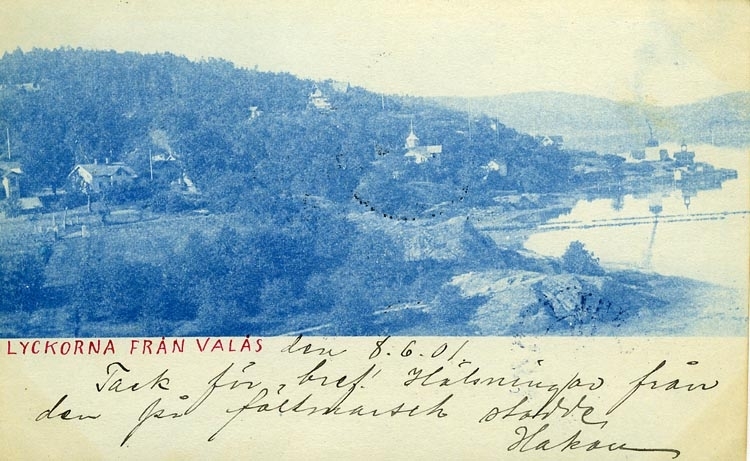 LYCKORNA FRÅN VALÅS den 8.6.01
Tack för bref! Hälsningar från
den på fältmarsch stadde
Hakon